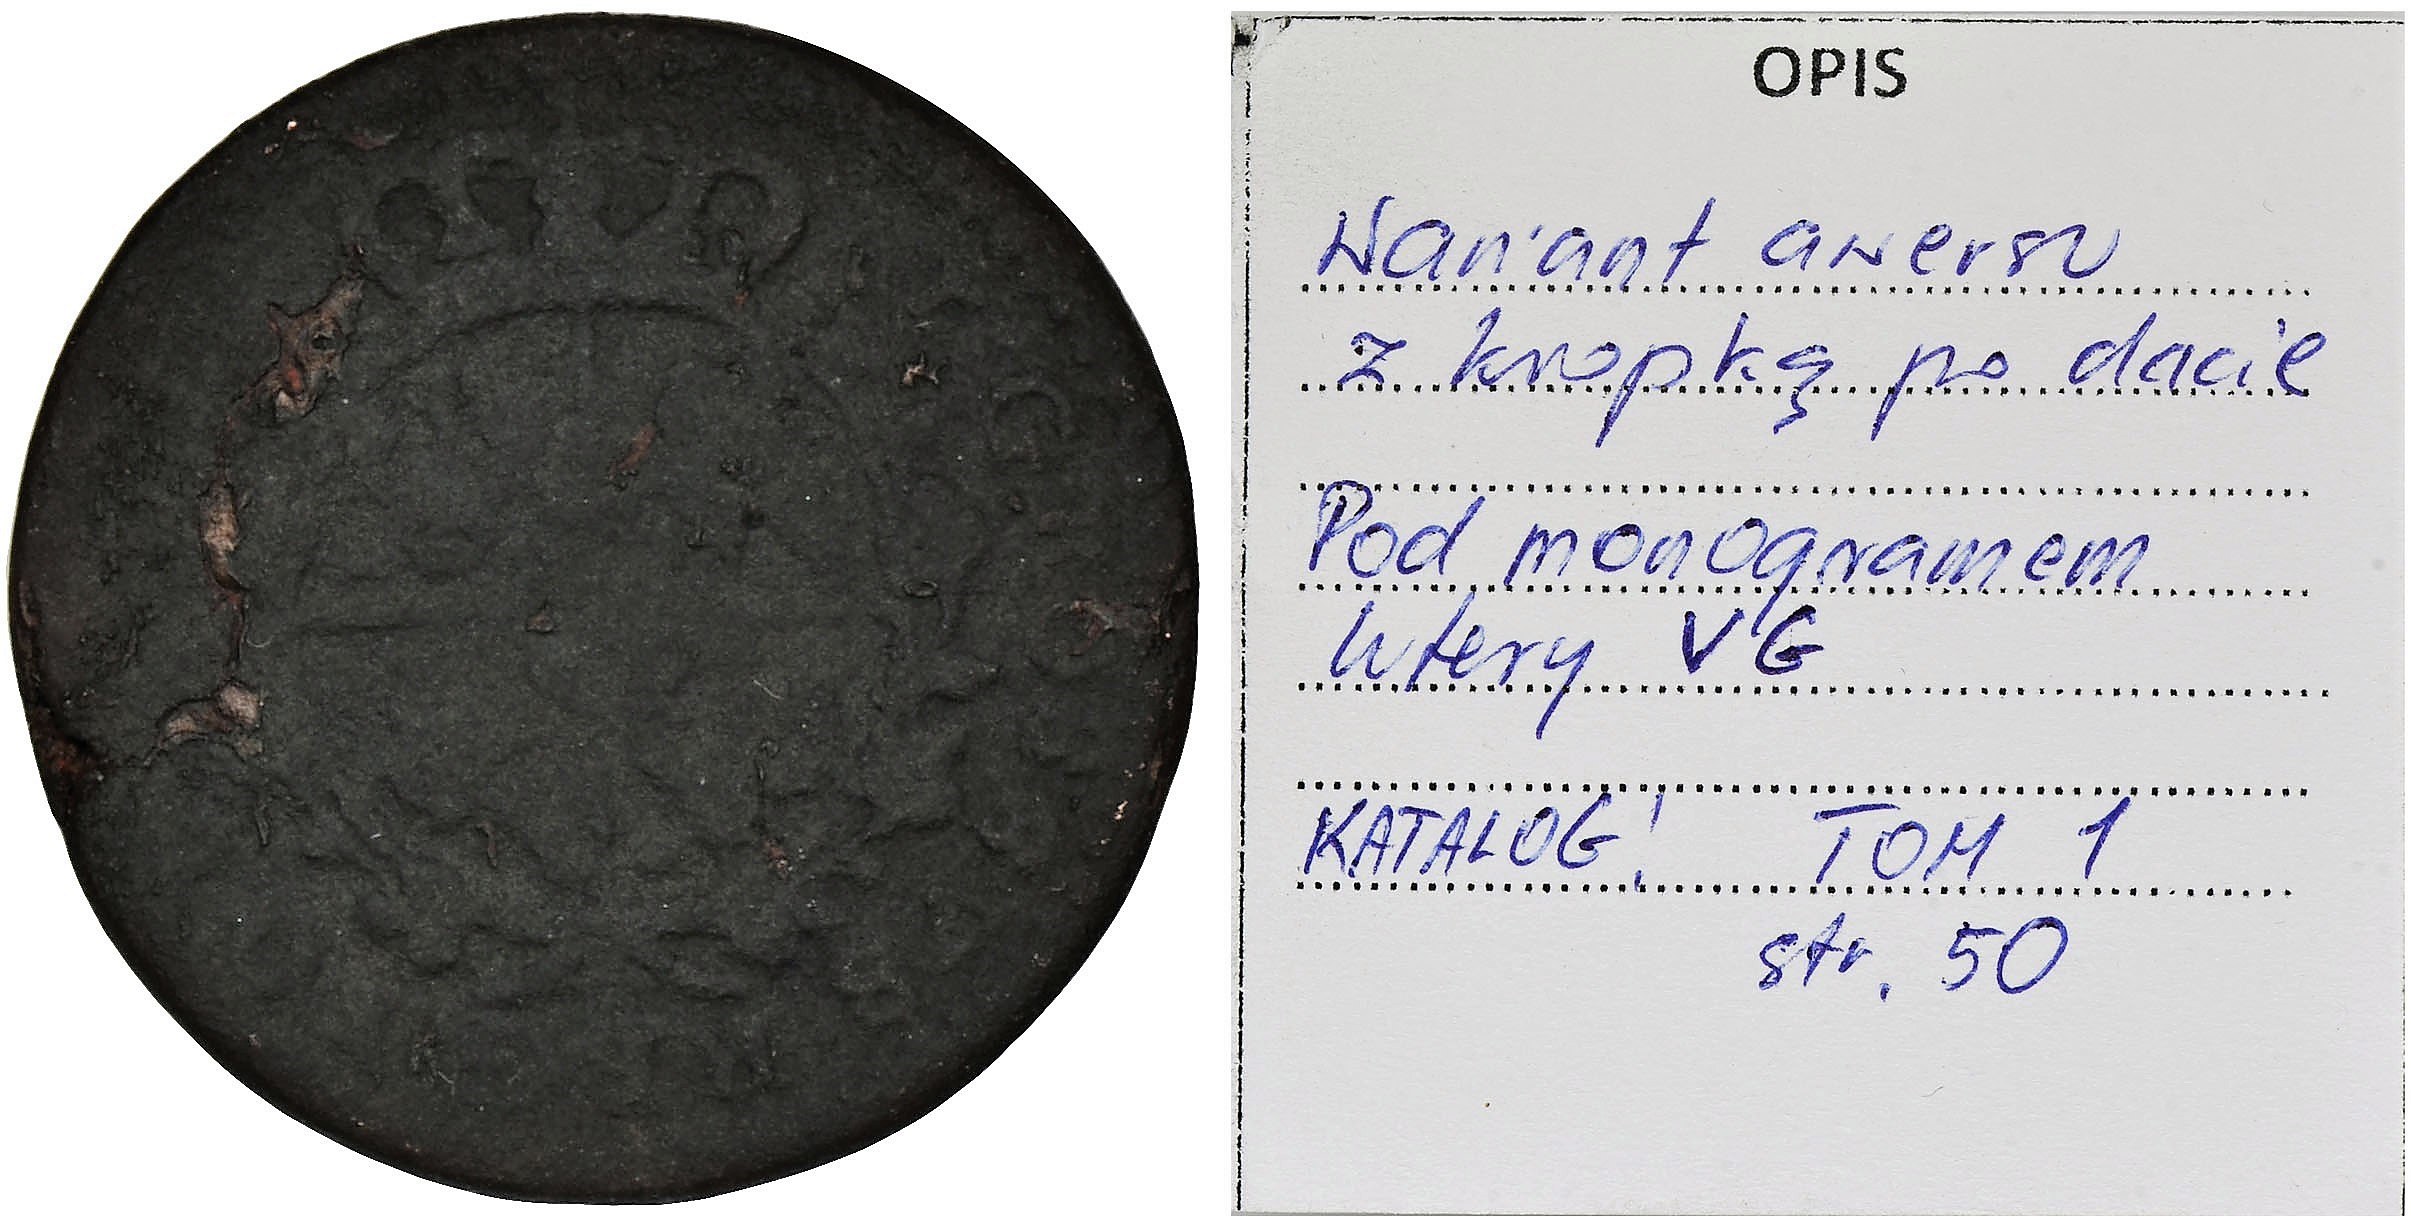 OPIS
Wariant awersu
z kropką po dacie
Pod monogramem
litery VG
KATALOG: TOM 1
str. 50